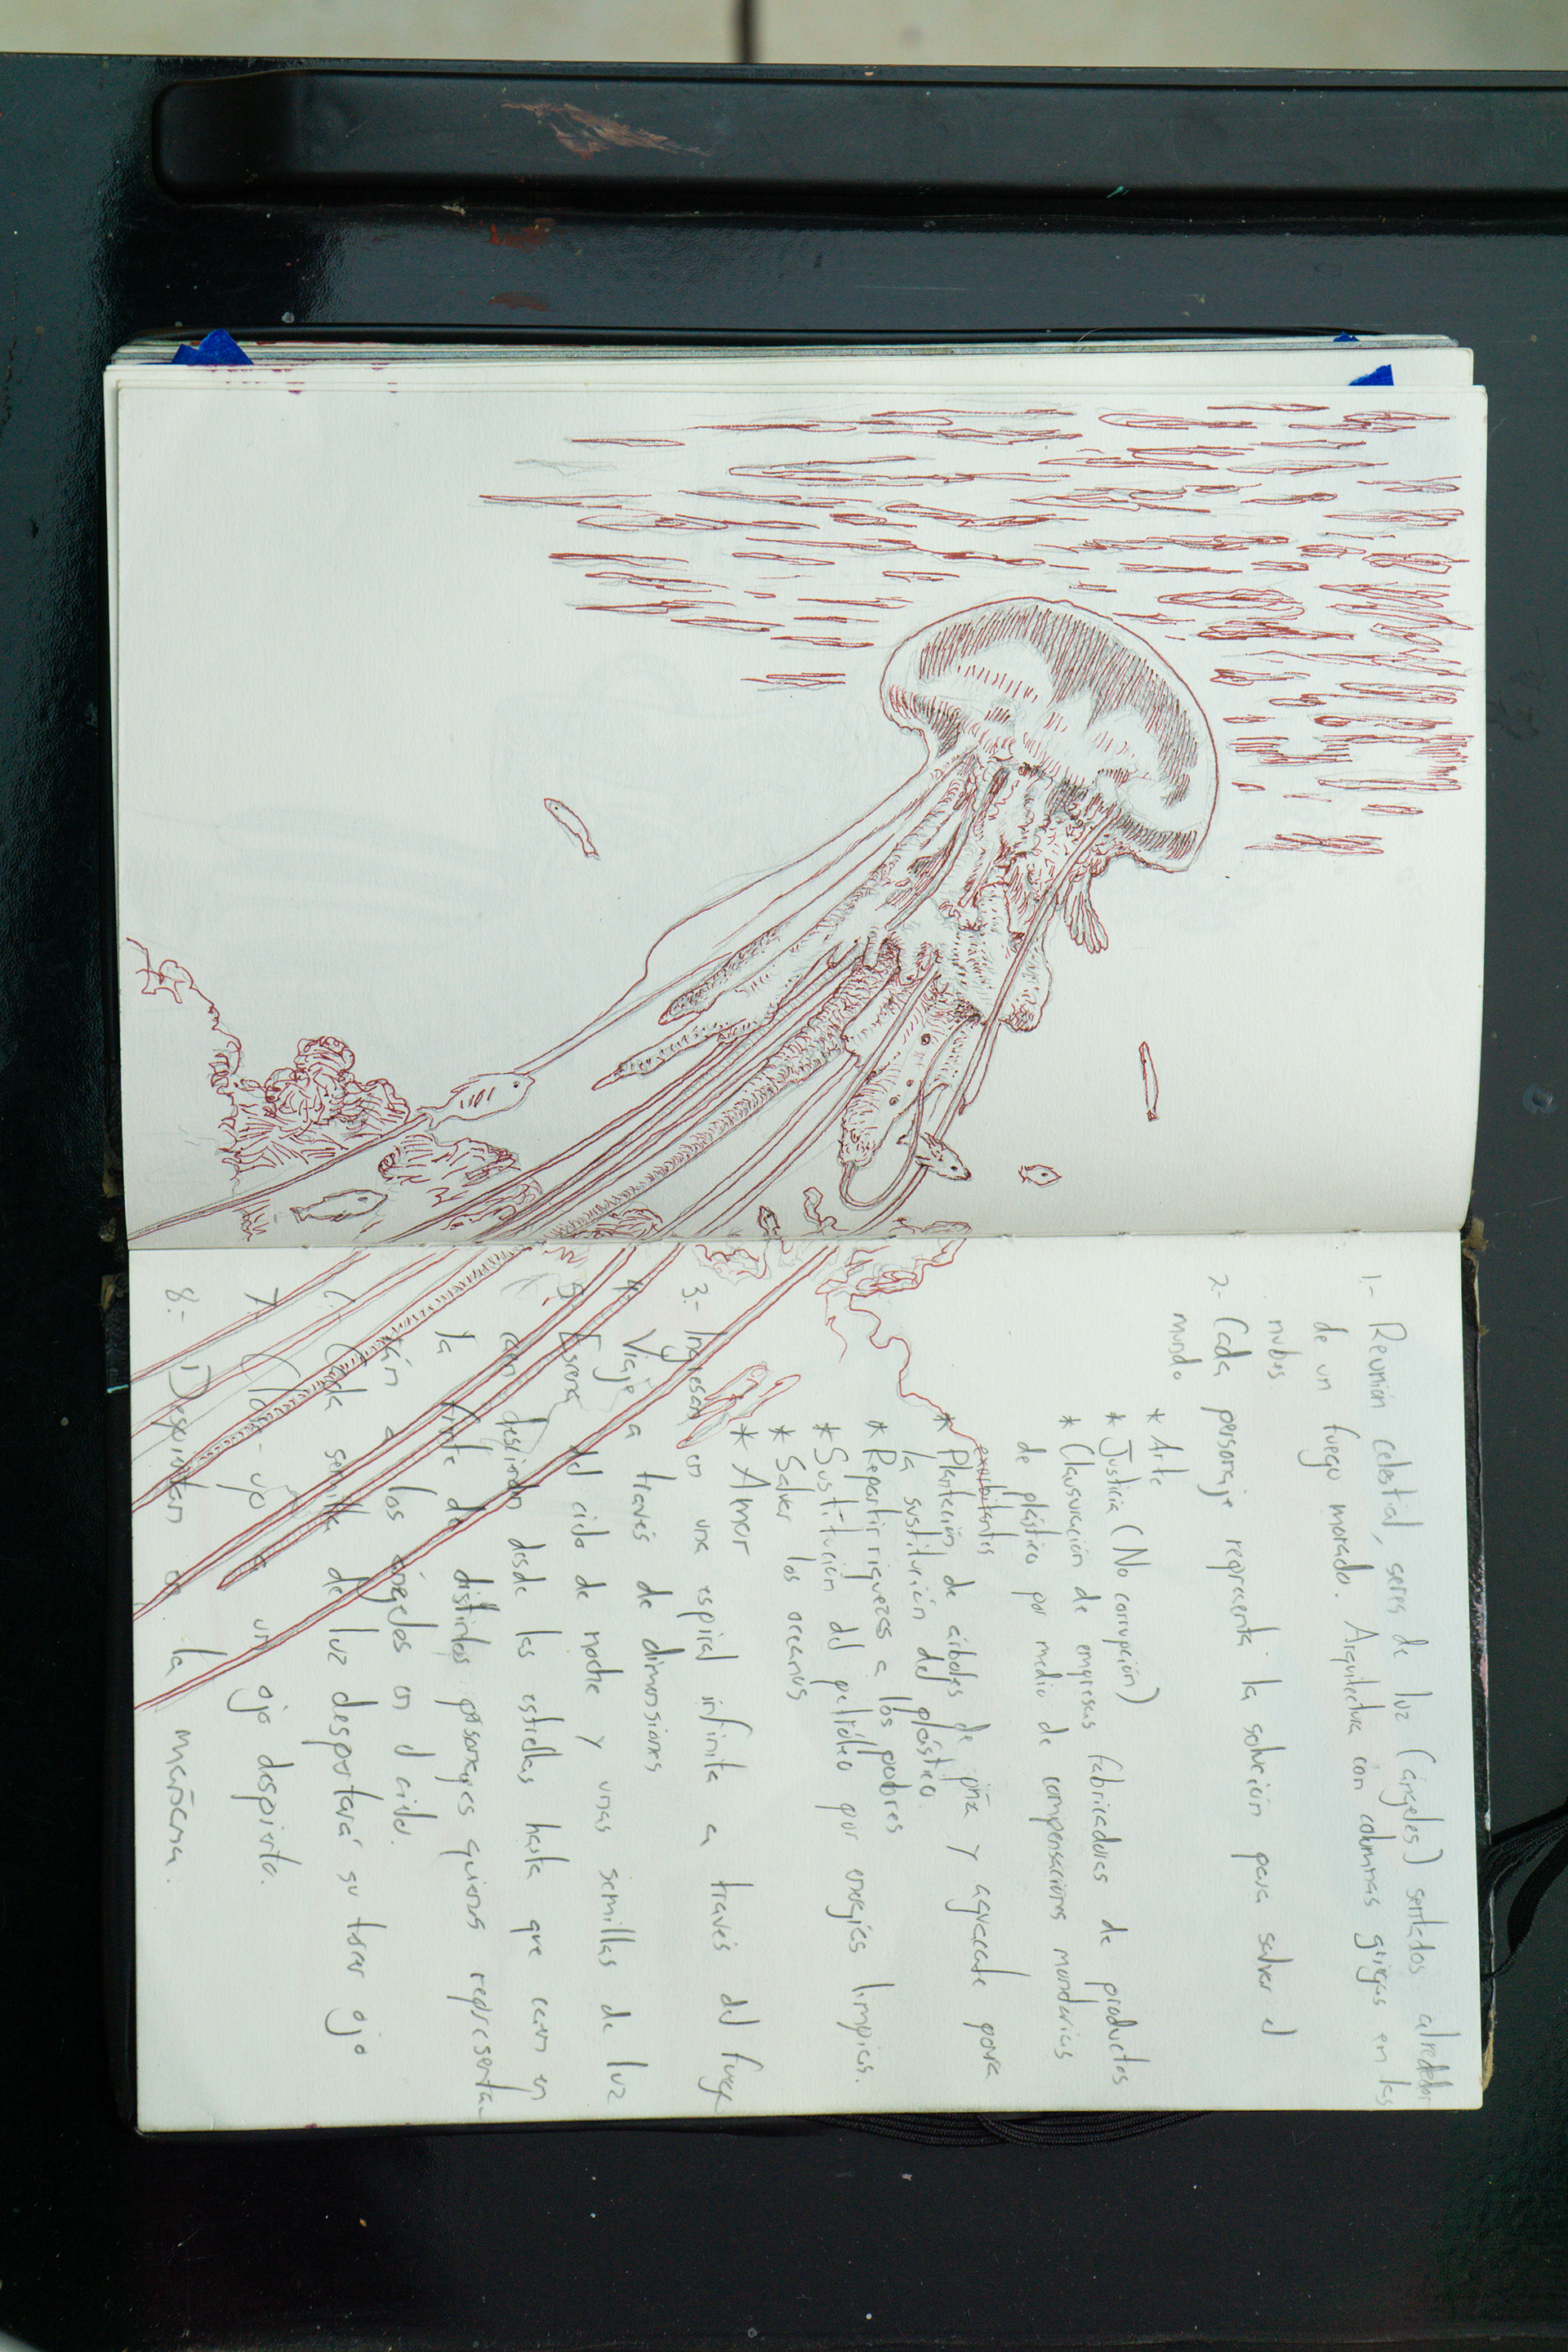 1.- Reunión celestial, seres de luz (ángeles) sentados alrededor
de un fuego morado. Arquitectura con columnas griegas en las
nubes
2.- Cada personaje representa la solución para salvar el
mundo
* Arte
* Justicia (No corrupción)
* Clausuración de empresas fabricadoras de productos
de plástico por medio de compensaciones monetarias
exorbitantes
* Plantación de árboles de piña y aguacate para
la sustitución del plástico.
* Repartir riquezas a los pobres
* Sustitución del petróleo por energías limpias.
* Salvar los oceanos
* Amor
3.- Ingresan en una espiral infinita a través del fuego
4.- Viaje a través de dimensiones
5.- Escena del cielo de noche y unas semillas de luz
desde las estrellas hasta que caen en
la frente de distintos personajes quienes representa
a los ángeles en el cielo.
Cada semilla de luz despertará su tercer ojo
7.- Close-up un ojo despierta.
8.- Despiertan en la mañana.